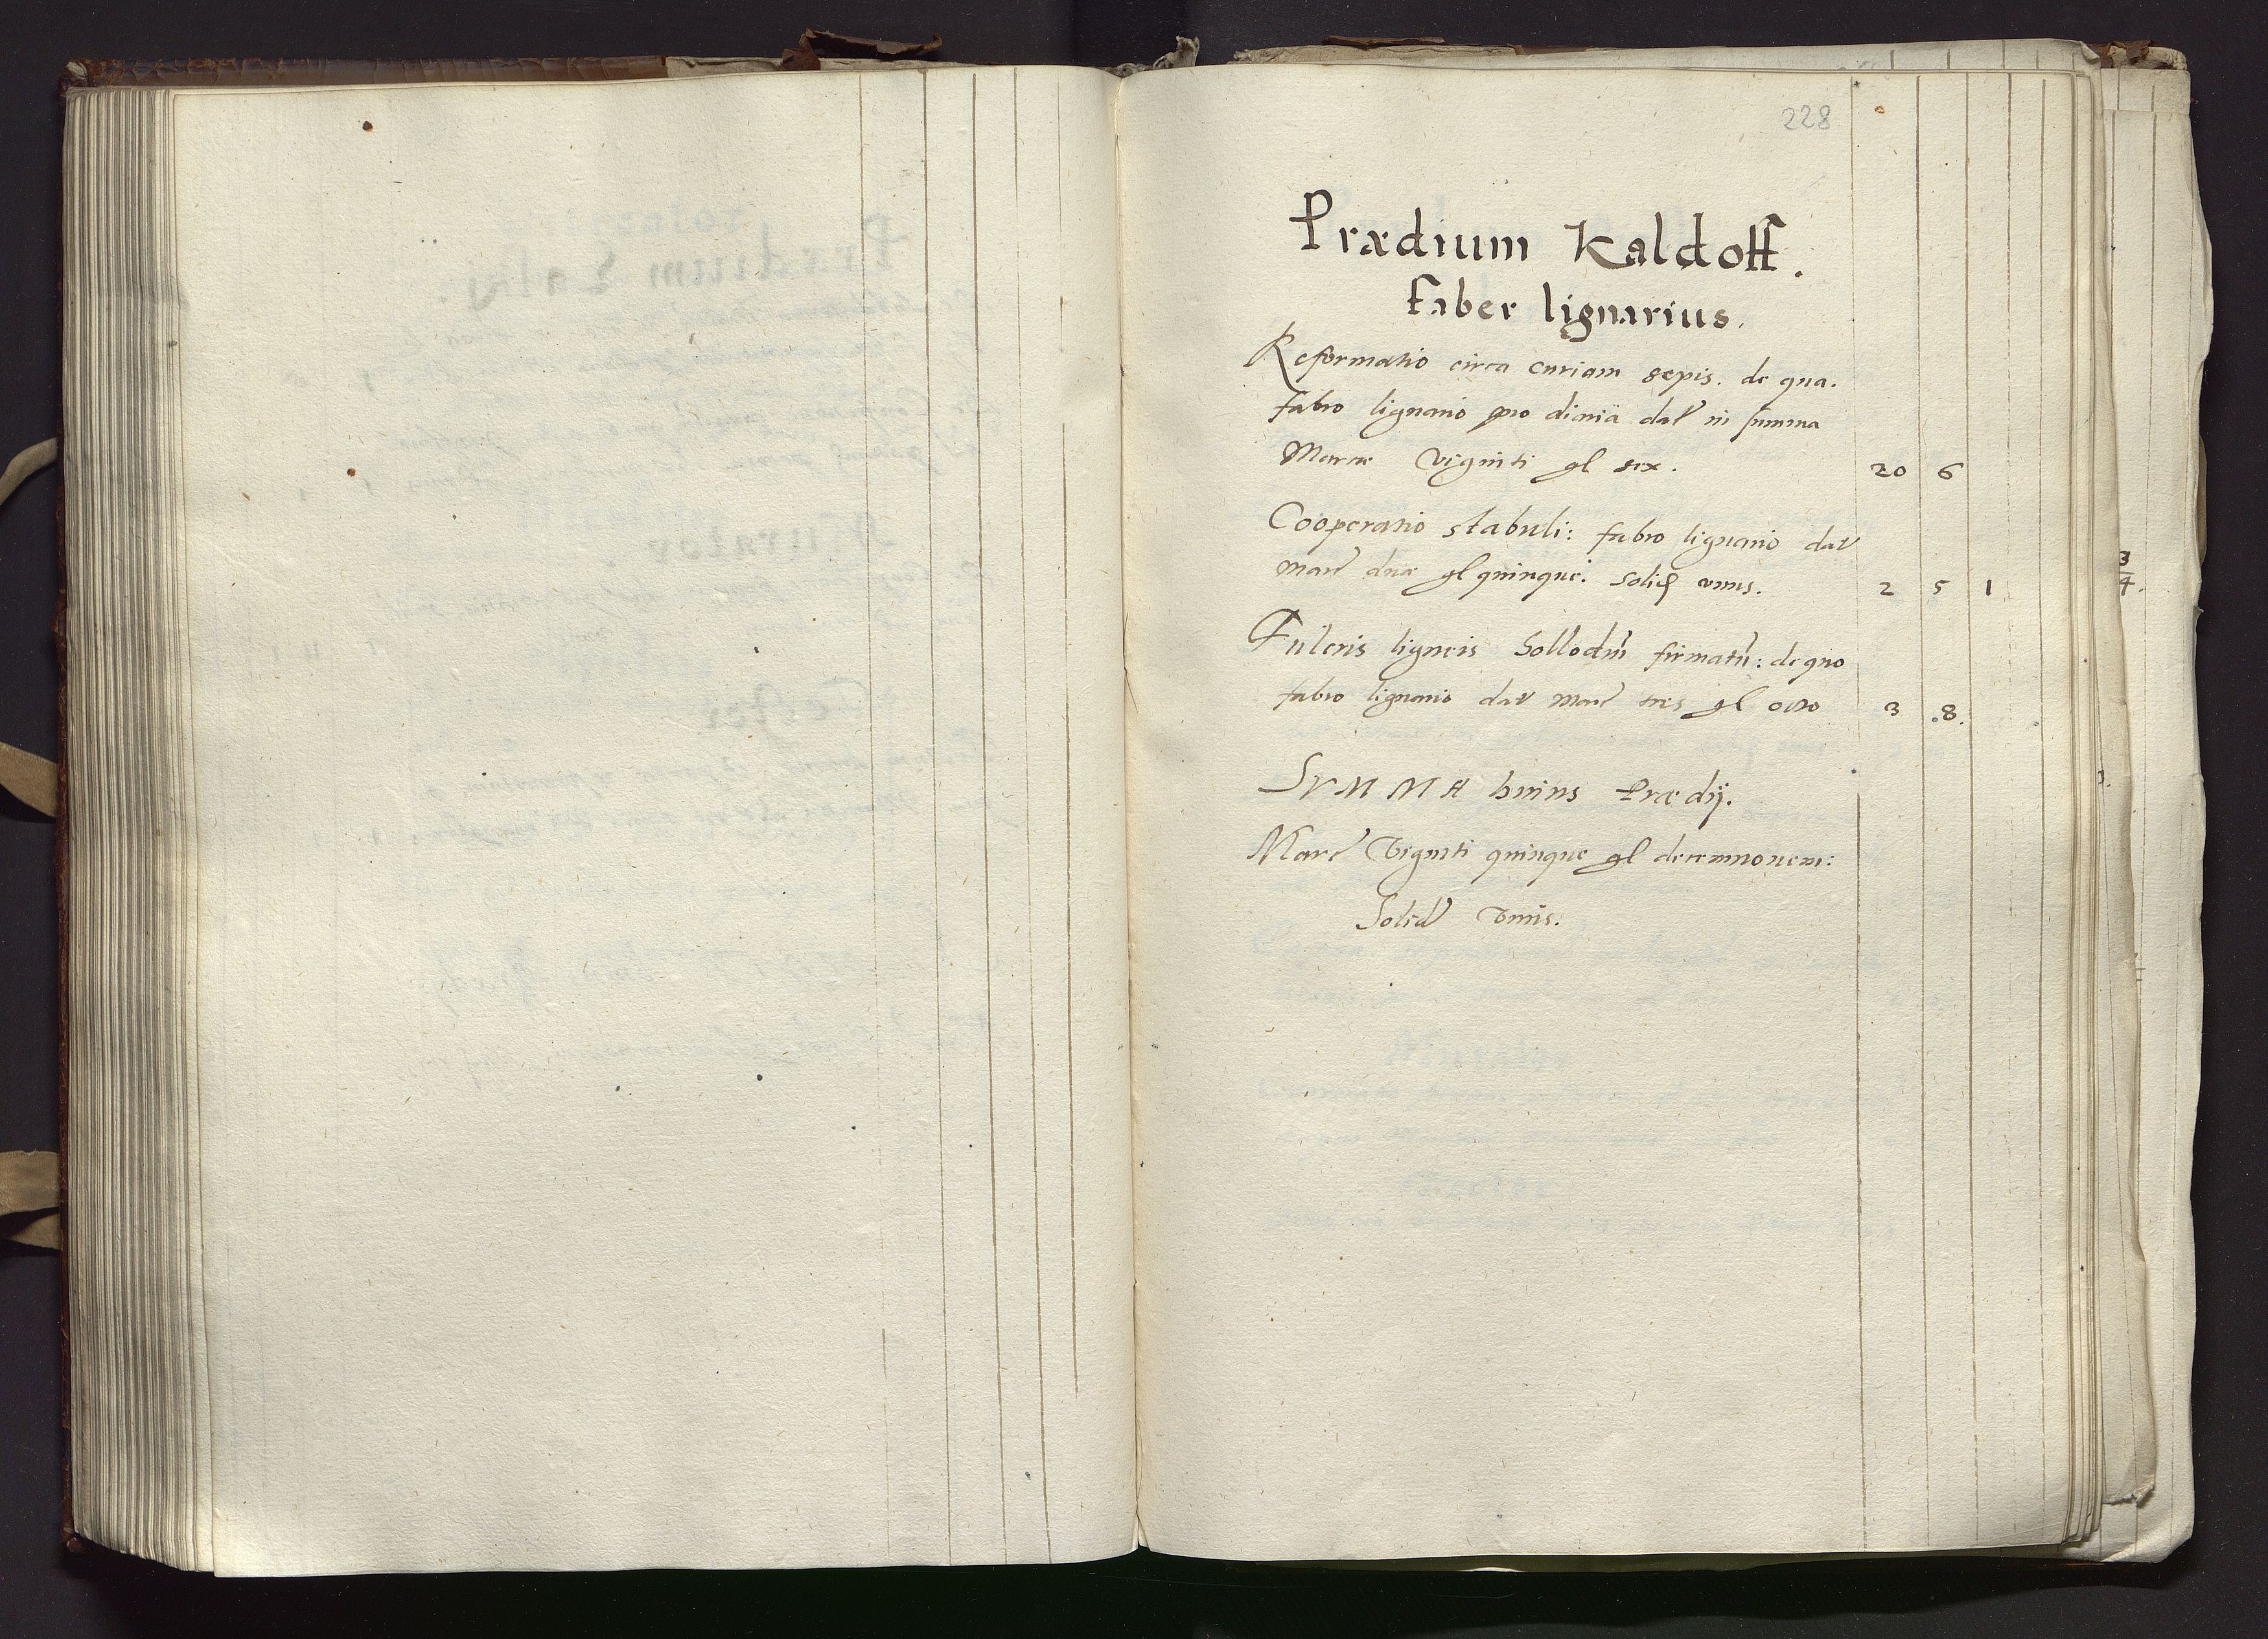 228
Prædium Kaldoff.
Faber lignarius.
Reformatio circa curiam sepis. de qua.
fabro lignario pro dimiā dat in summa
Marcæ Viginti gl sex. 20 6
Cooperatio stabuli: fabro lignario dat
marc duæ gl quinque. Solid unus. 2 5 1
Fulcris ligneis firmatū: de quo
fabro lignario dat marc tres gl octo 3 .8.
SVMMA huius Prædij.
Marc Viginti quinque gl decemnouem:
Solid Vnus.
3
4.